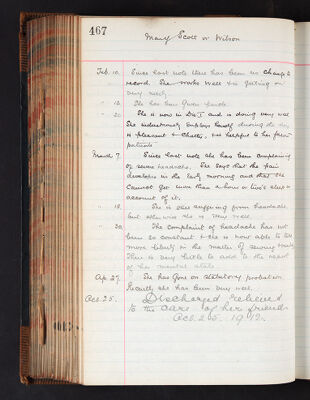 467
Mary Scott or Wilson
Feb. 10. Since last note there has been no change to
record. She works well & is getting on
very nicely.
" 12. She has been given parole.
" 20. She is now in and is doing very well.
She industriously employs herself during the day,
is pleasant & chatty, & is helpful to her fellow
patients.
March 7. Since last note she has been complaining
of severe headache. She says that the pain
develops in the early morning and that she
cannot get more than an hour or two's sleep on
account of it.
" 18. She is still suffering from headache
but otherwise she is very well.
" 30. The complaint of headache has not
been so constant & she is now able to
more liberty in the matter of
There is very little to add to the report
of her mental state.
Ap. 27. She has gone on statutory probation.
Recently she has been very well.
Oct. 25. Discharged relieved
to the care of her friends
Oct. 25. 1912.